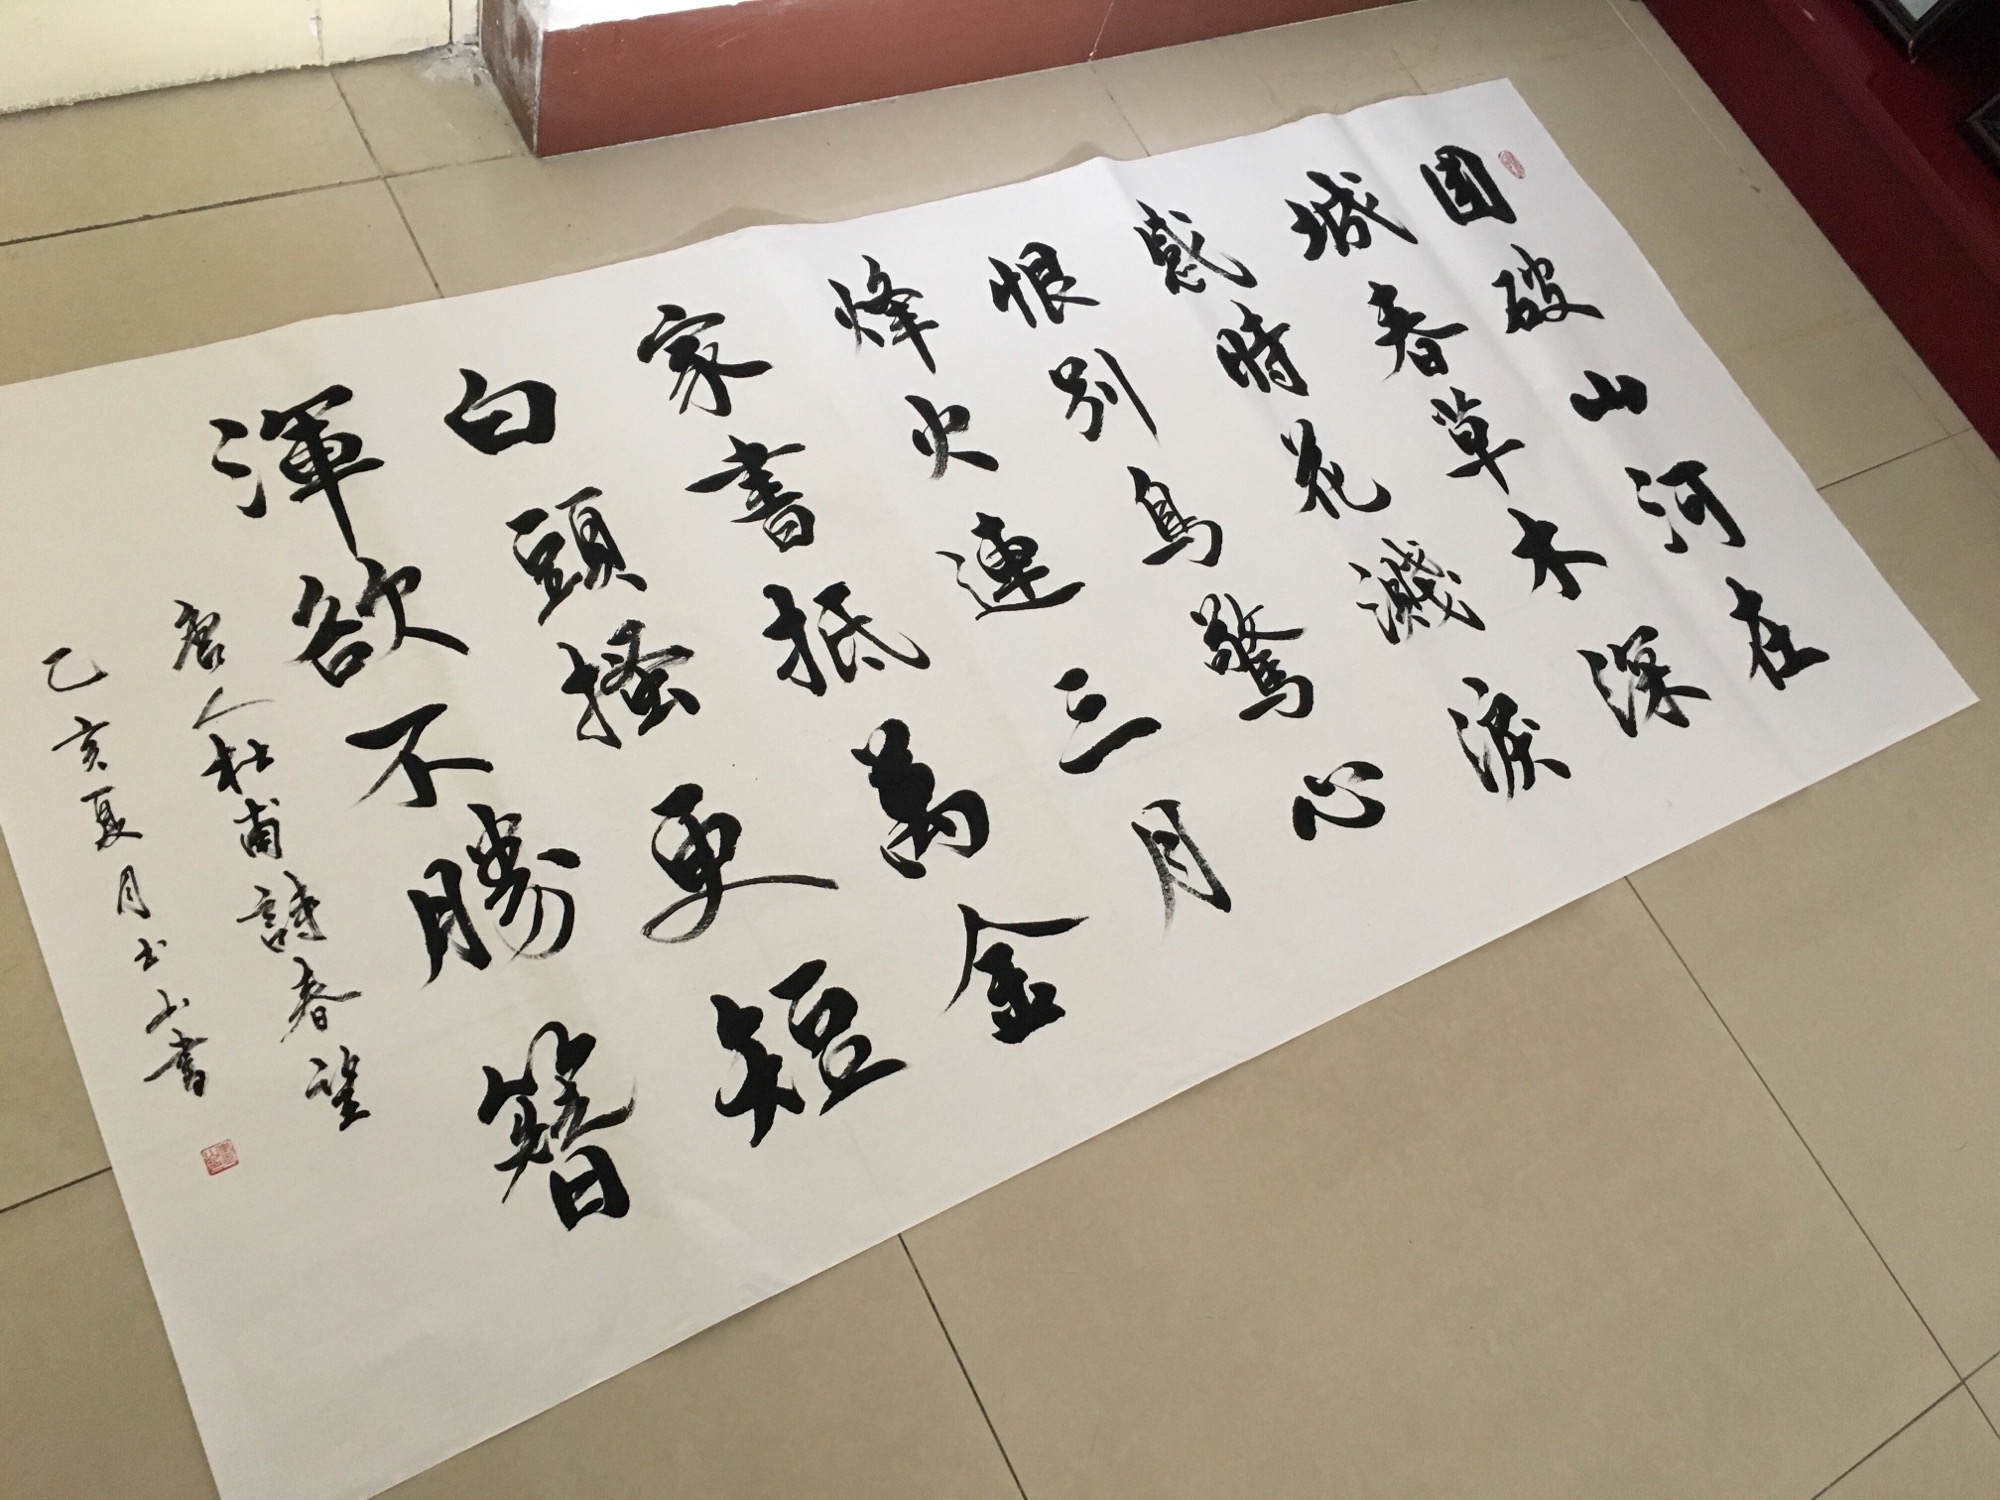 國破山河在
城春草木深
感時花濺淚
恨別鳥驚心
烽火連三月
家書抵萬金
白頭搔更短
渾欲不勝簪
唐人杜甫詩春望
乙亥夏月士山書